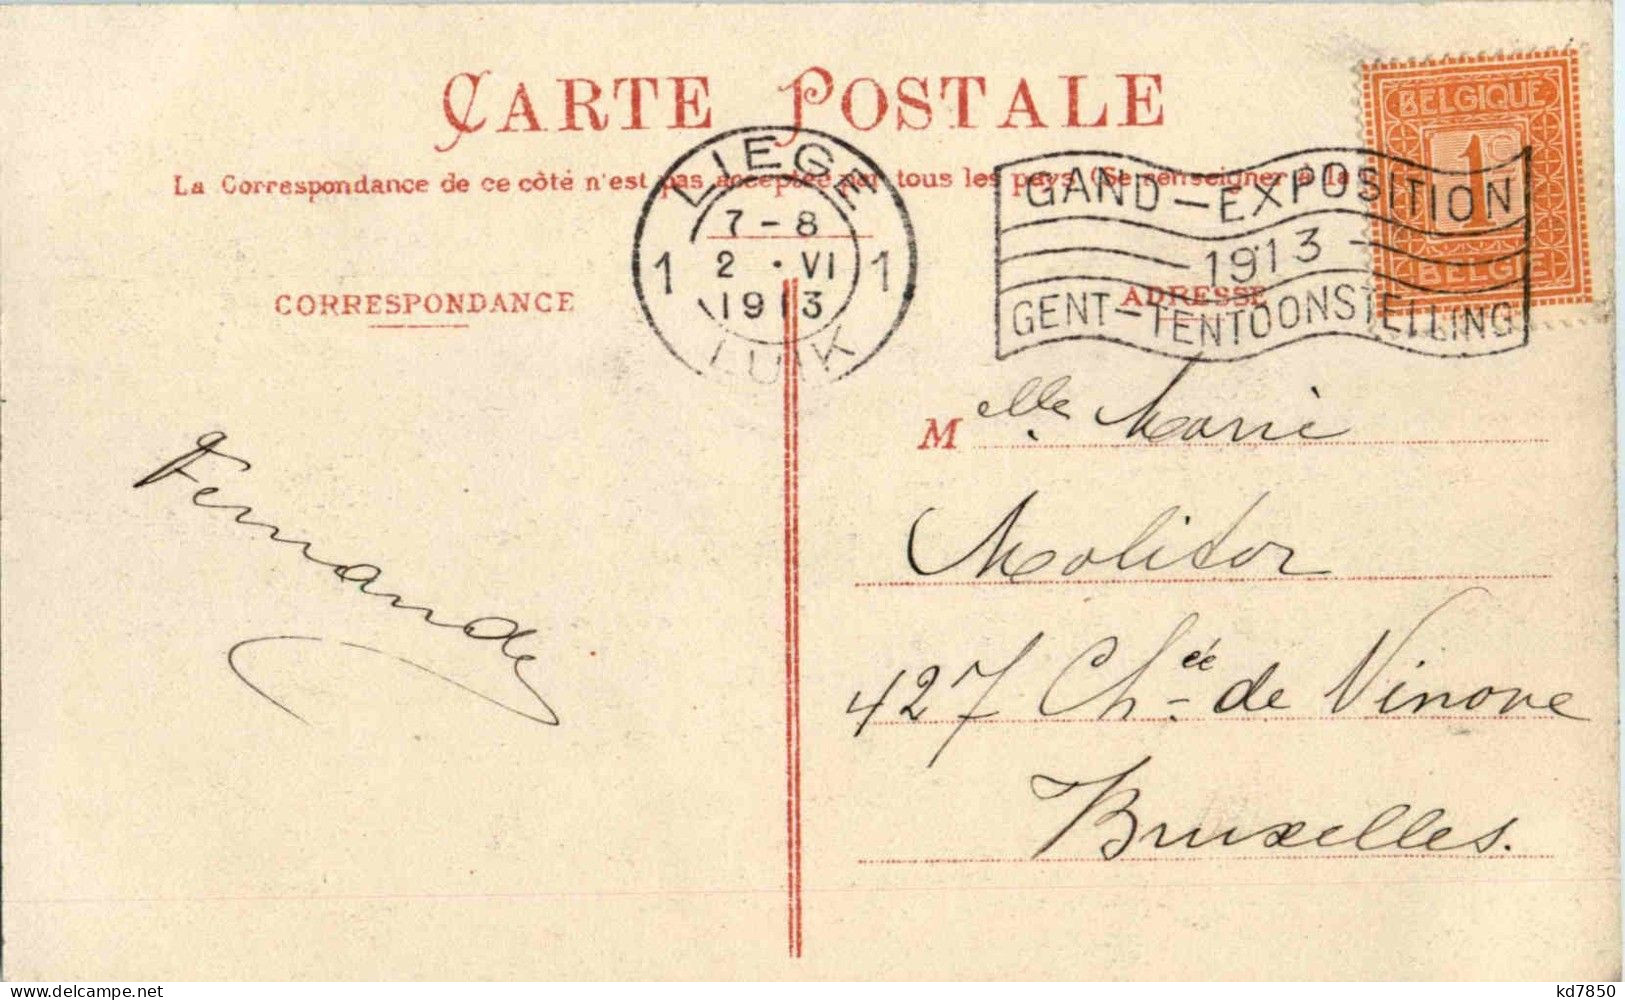 CARTE POSTALE
La Correspondance de ce côté n'est pas acceptée par tous les pays (Se renseigner à la
BELGIQUE
1c
BELGIË
LIEGE
7-8
1 2 · VI 1
1913
LUIK
GAND-EXPOSITION
1913
GENT-TENTOONSTELLING
CORRESPONDANCE
ADRESSE
Melle. Marie
Molitor
427 Chée de Ninove
Bruxelles.
Fernande
delcampe.net
kd7850